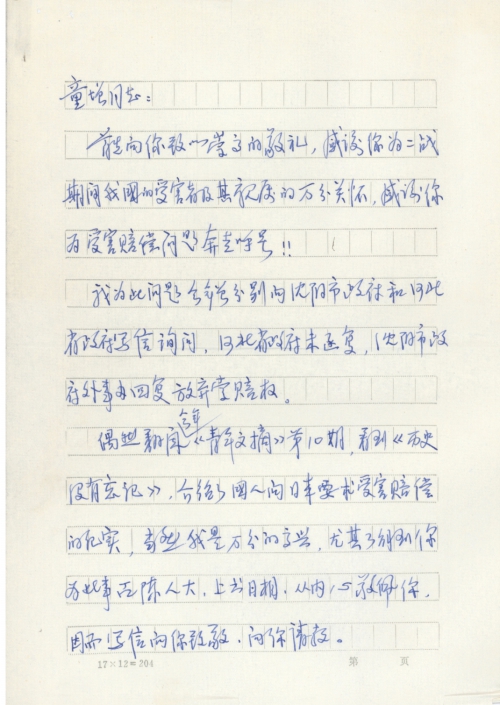 童增同志：
首先向你致以崇高的敬礼，感谢你为二战
期间我国的受害者及其亲属的万分关怀，感谢你
为受害赔偿问题奔走呼号！！
我为此问题今年曾分别向沈阳市政府和河北
省政府写信询问，河北省政府未返复，沈阳市政
府外事办回复放弃索赔权。
今年
偶然翻阅《青年文摘》第10期，看到《历史
没有忘记》，介绍了国人向日本要求受害赔偿
的纪实，当然我是万分的高兴，尤其了解到你
为此事面陈人大，上书日相，从内心敬佩你，
因而写信向你致敬，向你请教。
17×12=204 第 页